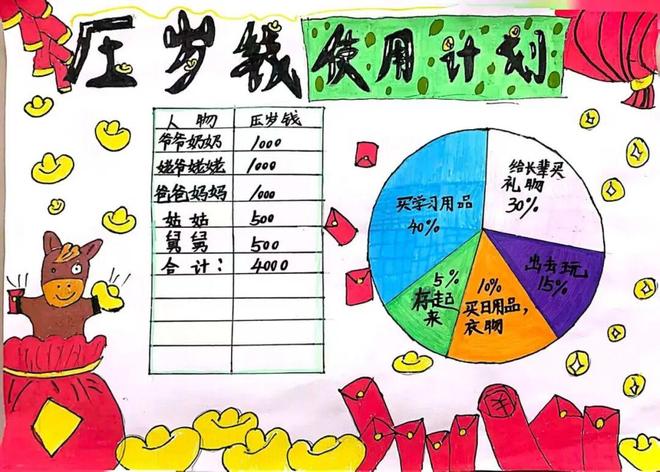 压岁钱使用计划
人物 压岁钱
爷爷奶奶 1000
姥爷姥姥 1000
爸爸妈妈 1000
姑姑 500
舅舅 500
合计: 4000
买学习用品
40%
给长辈买
礼物
30%
出去玩
15%
10%
买日用品,
衣物
5%
存起
来